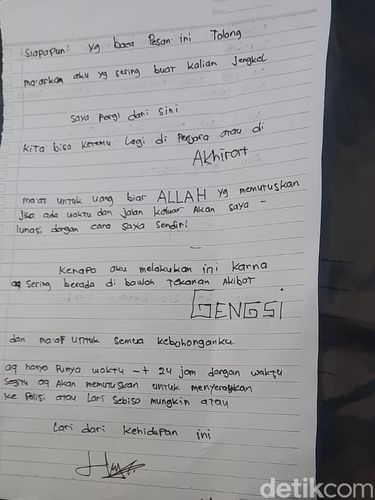 Siapapun yg baca Pesan ini Tolong
maafkan aku yg sering buat kalian jengkel
saya pergi dari sini
kita bisa ketemu lagi di Penjara atau di
Akhirat
maaf untuk uang biar ALLAH yg memutuskan
jika ada waktu dan jalan keluar Akan saya -
lunasi dangan cara saya sendiri
-
Kenapa aku melakukan ini karna
aq sering berada di bawah tekanan Akibat
GENGSI
dan maaf untuk semua kebohonganku
aq hanya Punya waktu -+ 24 jam dangan waktu
segitu aq Akan memutuskan untuk menyerahkan
ke Polisi atau lari sebisa mungkin atau
Lari dari kehidupan ini
detikcom